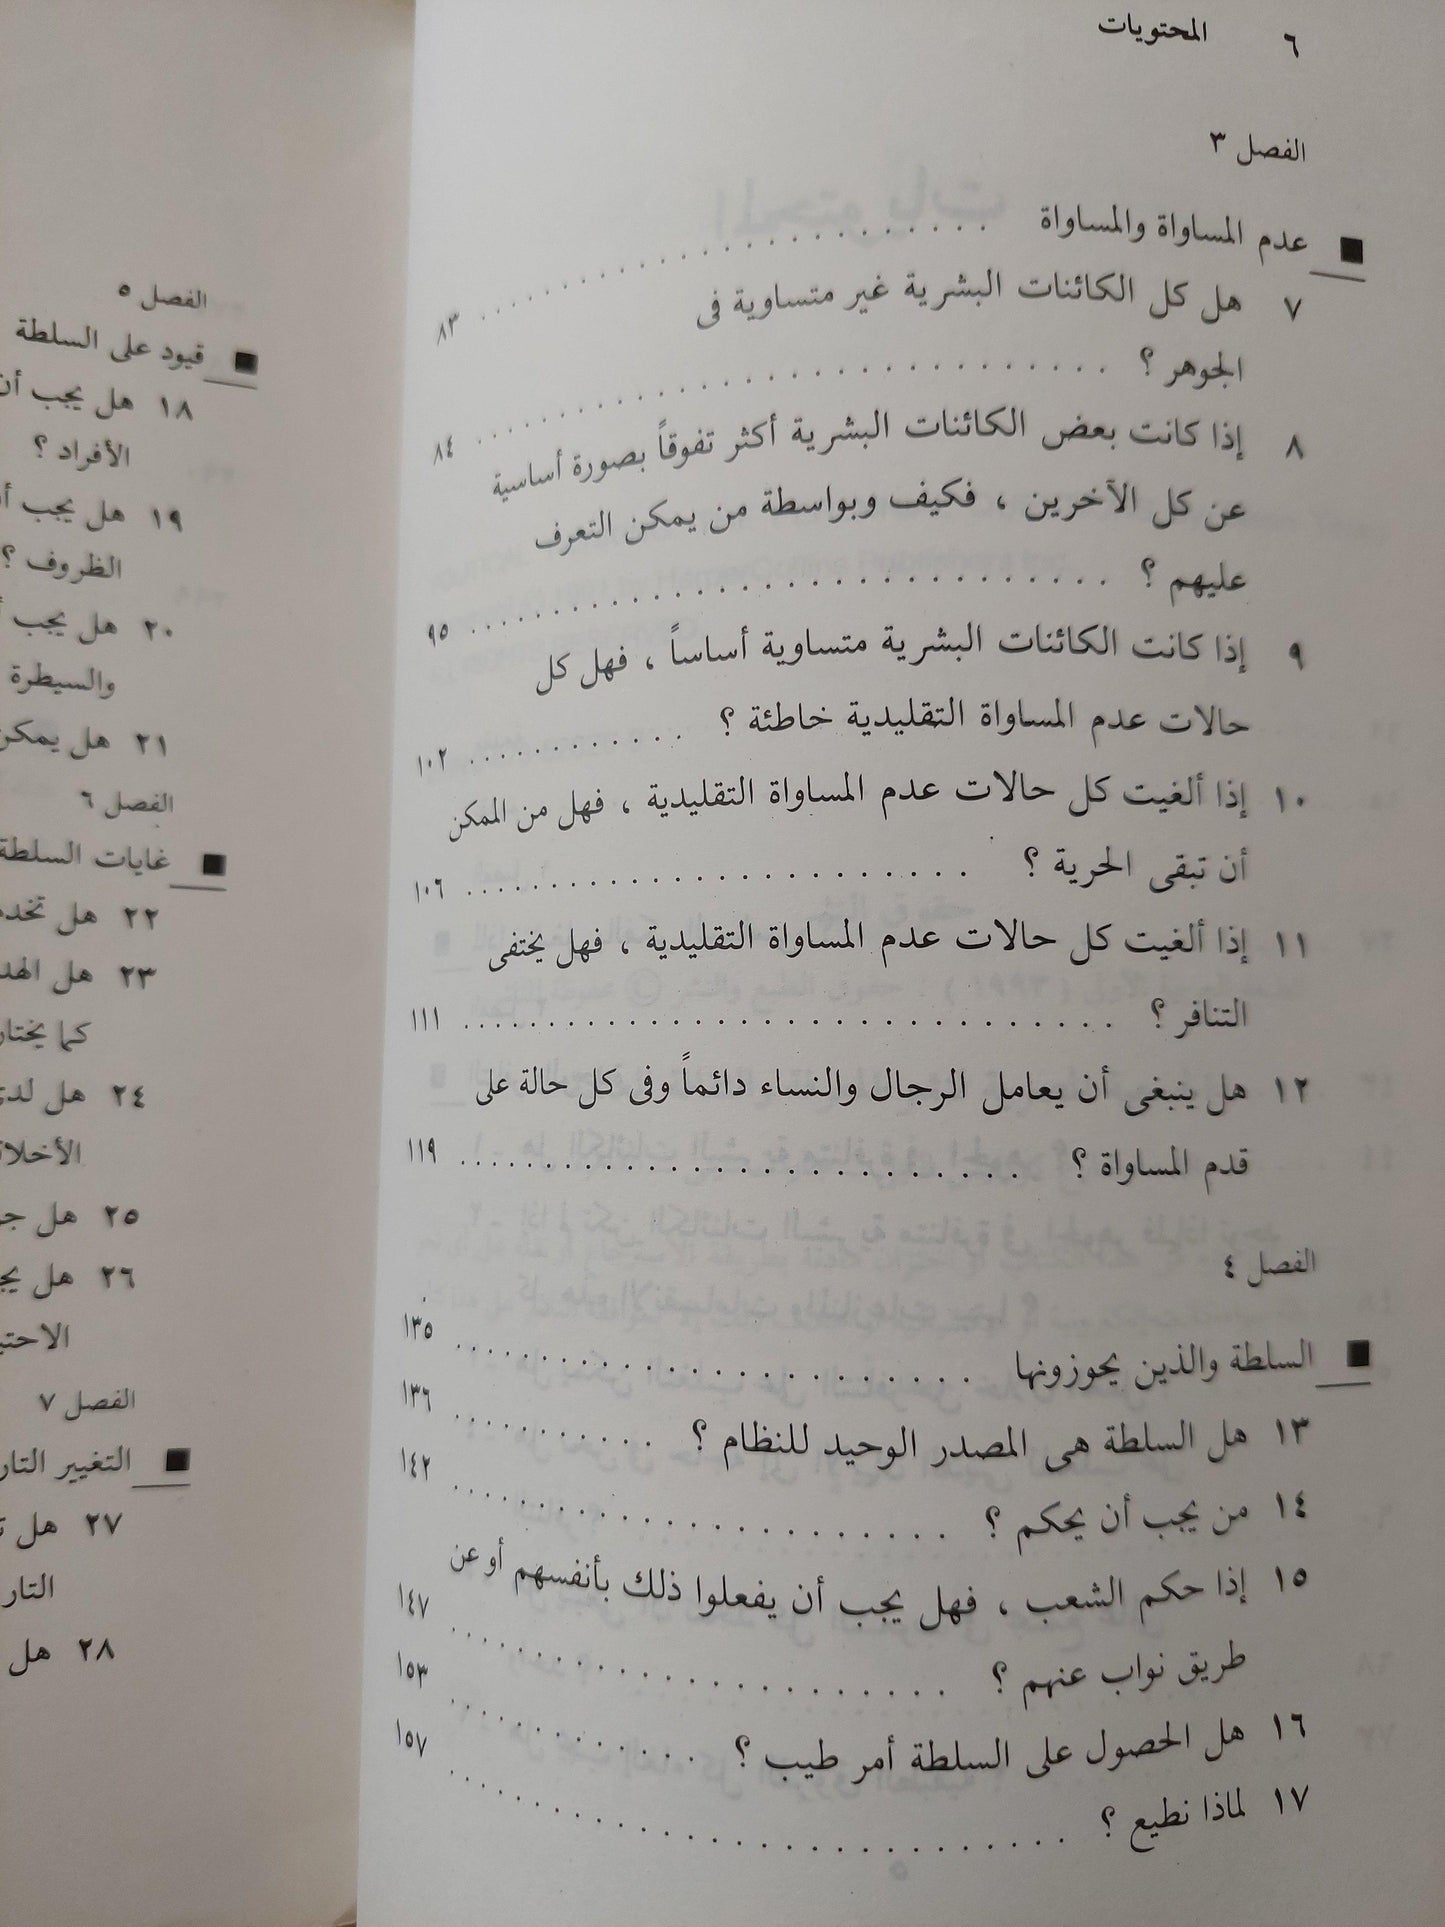 ٦ المحتويات
الفصل ٣
■ عدم المساواة والمساواة . . . . . . . . . . . . . ٨٣
٧ هل كل الكائنات البشرية غير متساوية فى
الجوهر ؟ . . . . . . . . . . . . . ٨٤
٨ إذا كانت بعض الكائنات البشرية أكثر تفوقاً بصورة أساسية
عن كل الآخرين ، فكيف وبواسطة من يمكن التعرف
عليهم ؟ . . . . . . . . . . . . . ٩٥
٩ إذا كانت الكائنات البشرية متساوية أساساً ، فهل كل
حالات عدم المساواة التقليدية خاطئة ؟ . . . . . . . . . . . . . ١٠٢
١٠ إذا ألغيت كل حالات عدم المساواة التقليدية ، فهل من الممكن
أن تبقى الحرية ؟ . . . . . . . . . . . . . ١٠٦
١١ إذا ألغيت كل حالات عدم المساواة التقليدية ، فهل يختفى
التنافر ؟ . . . . . . . . . . . . . ١١١
١٢ هل ينبغى أن يعامل الرجال والنساء دائماً وفى كل حالة على
قدم المساواة ؟ . . . . . . . . . . . . . ١١٩
الفصل ٤
■ السلطة والذين يحوزونها . . . . . . . . . . . . . ١٣٥
١٣ هل السلطة هى المصدر الوحيد للنظام ؟ . . . . . . . . . . . . . ١٣٦
١٤ من يجب أن يحكم ؟ . . . . . . . . . . . . . ١٤٢
١٥ إذا حكم الشعب ، فهل يجب أن يفعلوا ذلك بأنفسهم أو عن
طريق نواب عنهم ؟ . . . . . . . . . . . . . ١٤٧
١٦ هل الحصول على السلطة أمر طيب ؟ . . . . . . . . . . . . . ١٥٣
١٧ لماذا نطيع ؟ . . . . . . . . . . . . . ١٥٧
الفصل ٥
■ قيود على السلطة
١٨ هل يجب أن
الأفراد ؟
١٩ هل يجب
الظروف ؟
٢٠ هل يجب
والسيطرة
٢١ هل يمكن
الفصل ٦
■ غايات السلطة
٢٢ هل
٢٣ هل
كما
٢٤ هل
٢٥ هل
٢٦ هل
الفصل ٧
■ التغيير
٢٧ هل
٢٨ هل